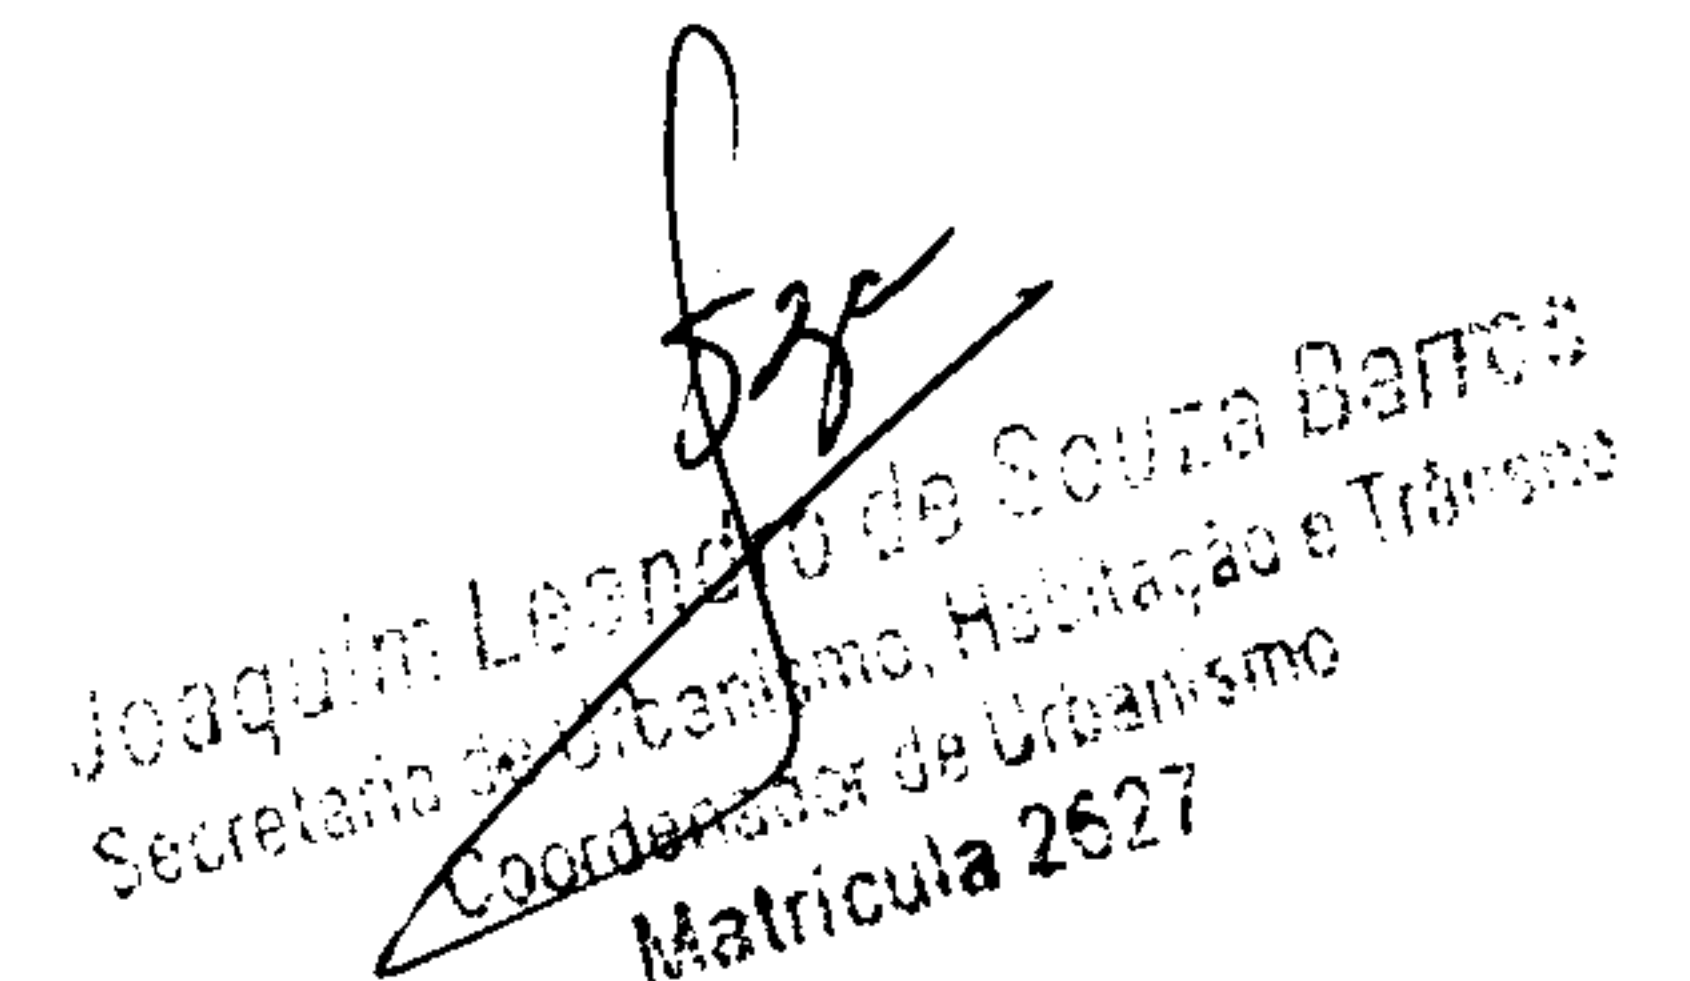 Joaquim Leandro de Souza Barros
Secretaria de Urbanismo, Habitação e Trânsito
Coordenador de Urbanismo
Matricula 2627